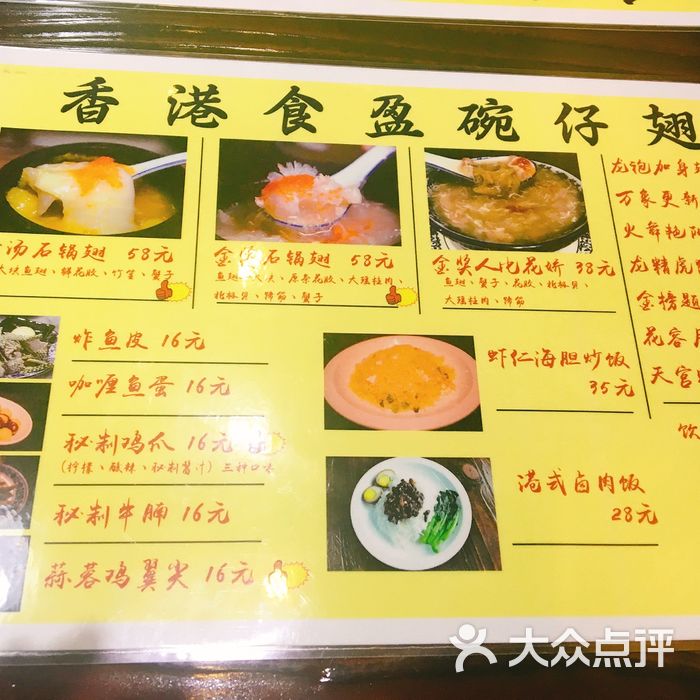 香港食盈碗仔翅
汤石锅翅 58元
大块鱼翅、鲜花胶、竹笙、蟹子
金汤石锅翅 58元
大瑶柱肉、蹄筋、蟹子
金奖人气花娇 38元
鱼翅、蟹子、花胶、北极贝、
大瑶柱肉、蹄筋
龙袍加身
万象更新
火舞艳
龙精虎
金榜题
花容月
天宫
饮
炸鱼皮 16元
咖喱鱼蛋 16元
秘制鸡爪 16元
(柠檬、酸辣、秘制酱汁) 三种口味
秘制牛腩 16元
蒜蓉鸡翼尖 16元
虾仁海胆炒饭
35元
港式卤肉饭
28元
大众点评